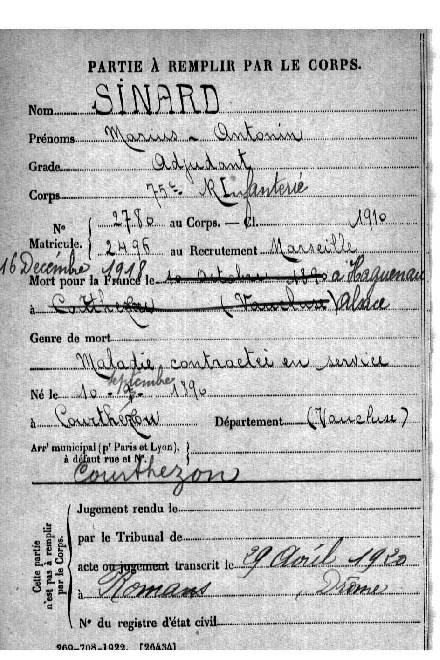 PARTIE À REMPLIR PAR LE CORPS.
Nom SINARD
Prénoms Marius - Antonin
Grade Adjudant
Corps 75e R Infanterie
N° Matricule. { 2780 au Corps. — Cl. 1910
2496 au Recrutement Marseille
16 Décembre 1918
Mort pour la France le 10 octobre 1890 à Haguenau
à Courthezon (Vaucluse) Alsace
Genre de mort
Maladie contractée en service
septembre
Né le 10 - 9 - 1890
à Courthezon Département (Vaucluse)
Arrt municipal (pr Paris et Lyon), }
à défaut rue et N°. }
Courthezon
Cette partie
n'est pas à remplir
par le Corps.
Jugement rendu le
par le Tribunal de
acte ou jugement transcrit le 29 Avril 1920
à Romans Drôme
N° du registre d'état civil
269-708-1922. [26434]